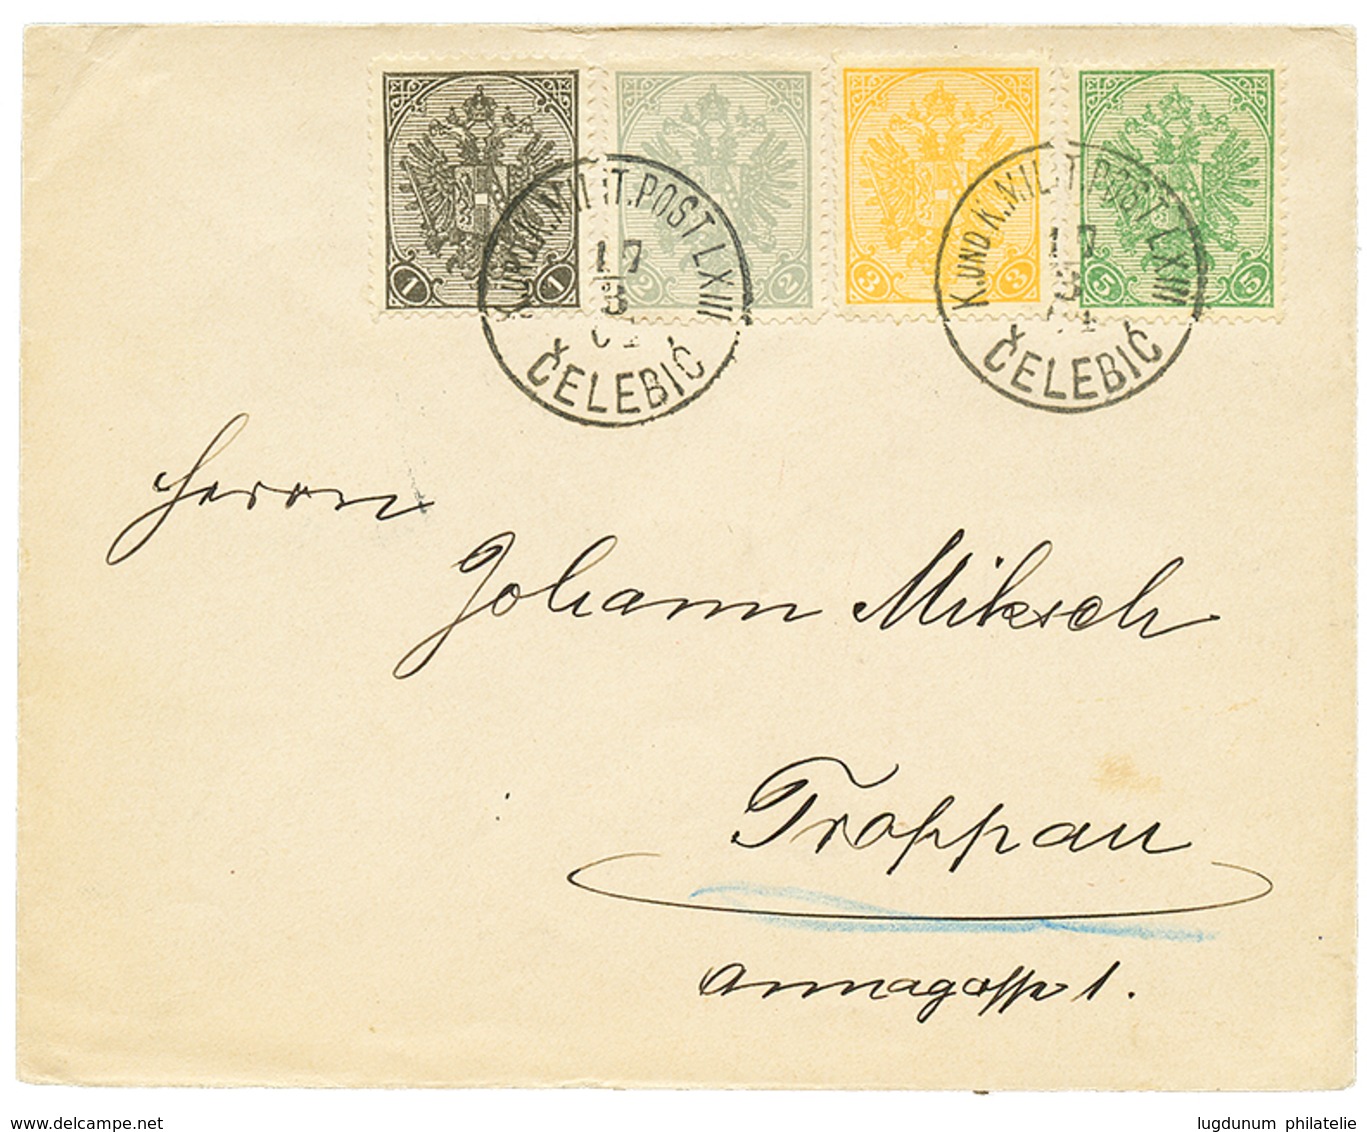 1 1 2 2 3 3 5 5
K. UND K. MILIT. POST LXIII
17
3
ČELEBIĆ
K. UND K. MILIT. POST LXIII
17
3
ČELEBIĆ
Herrn
Johann Miksch
Troppau
Annagasse 1.
www.delcampe.net
lugdunum philatelie